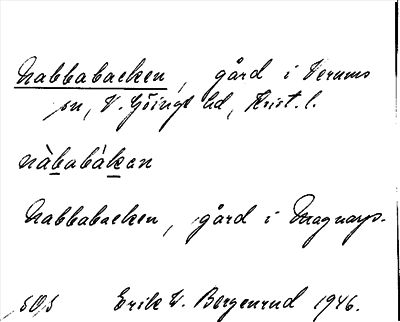 Nabbabacken, gård i Verums
sn, V. Göinge hd, Krist. l.
nàbabàkan
Nabbabacken, gård i
Erik W. Bergenrud 1946.